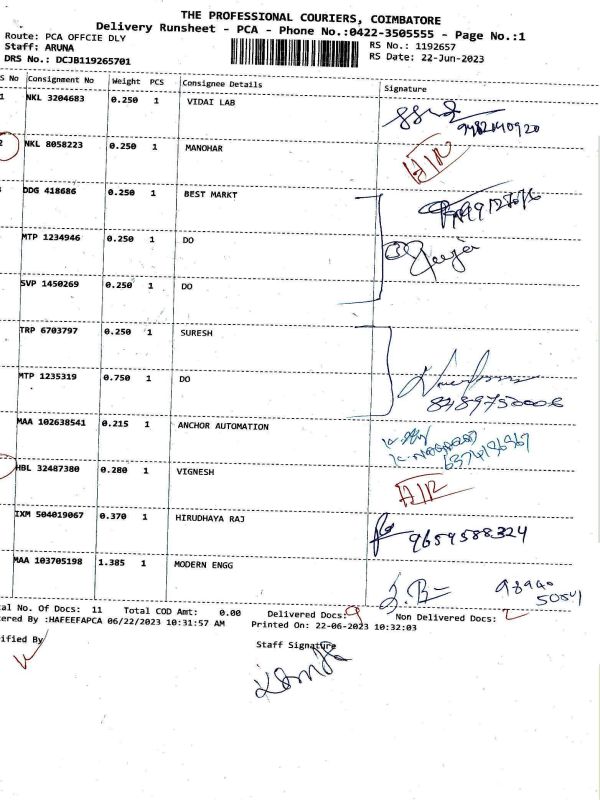 THE PROFESSIONAL COURIERS, COIMBATORE
Delivery Runsheet - PCA - Phone No.:0422-3505555 - Page No.:1
Route: PCA OFFCIE DLY
Staff: ARUNA
DRS No.: DCJB119265701
RS No.: 1192657
RS Date: 22-Jun-2023
S No Consignment No Weight PCS Consignee Details Signature
1 NKL 3204683 0.250 1 VIDAI LAB
9482140920
2 NKL 8058223 0.250 1 MANOHAR
DDG 418686 0.250 1 BEST MARKT
MTP 1234946 0.250 1 DO
SVP 1450269 0.250 1 DO
TRP 6703797 0.250 1 SURESH
MTP 1235319 0.750 1 DO
8489750006
MAA 102638541 0.215 1 ANCHOR AUTOMATION
6374136967
HBL 32487380 0.280 1 VIGNESH
IXM 504019067 0.370 1 HIRUDHAYA RAJ 9659588324
MAA 103705198 1.385 1 MODERN ENGG
98940
50541
al No. Of Docs: 11 Total COD Amt: 0.00 Delivered Docs: 9 Non Delivered Docs: 2
ered By :HAFEEFAPCA 06/22/2023 10:31:57 AM Printed On: 22-06-2023 10:32:03
ified By Staff Signature